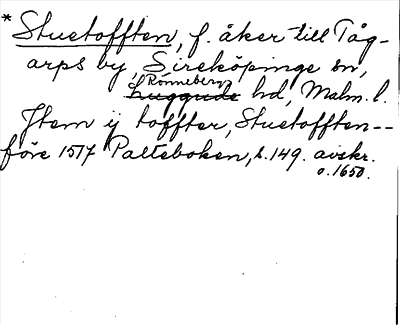 * Stuetofften, f. åker till Tåg-
arps by, Sireköpinge sn,
Rönneberg
Luggude hd, Malm. l.
Item ij toffter, Stuetofften--
före 1517 Palteboken, s. 149. avskr.
o. 1650.